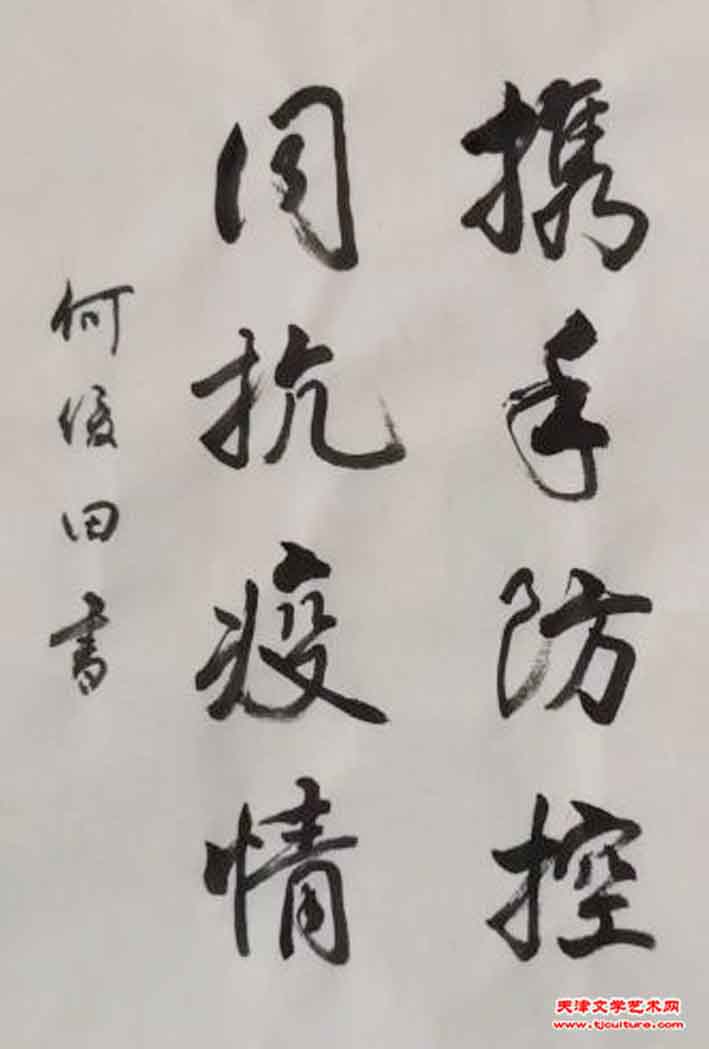 携手防控
同抗疫情
何俊田書
天津文学艺术网
www.tjculture.com